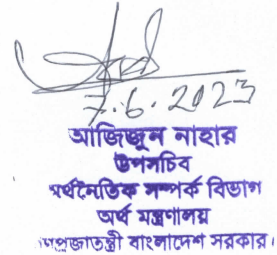 7.6.2023
আজিজুন নাহার
উপসচিব
অর্থনৈতিক সম্পর্ক বিভাগ
অর্থ মন্ত্রণালয়
গণপ্রজাতন্ত্রী বাংলাদেশ সরকার।